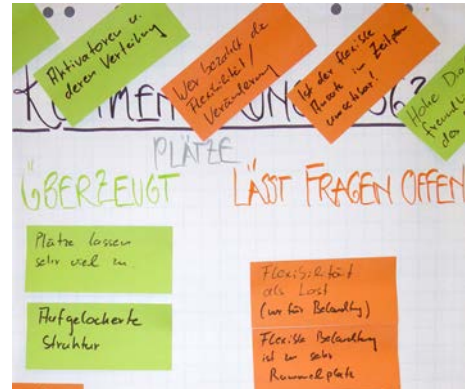 Aktivatoren u.
deren Verteilung
Wer bezahlt die
Flexibilität /
Veränderung
Ist der flexible
Ansatz im Zeitplan
umsetzbar?
Hohe
KOMMEN
PLÄTZE
ÜBERZEUGT
LÄSST FRAGEN OFFEN
Plätze lassen
sehr viel zu
Aufgelockerte
Struktur
Flexibilität
als Last
(nur für
Flexible
ist zu sehr
Rummelplatz